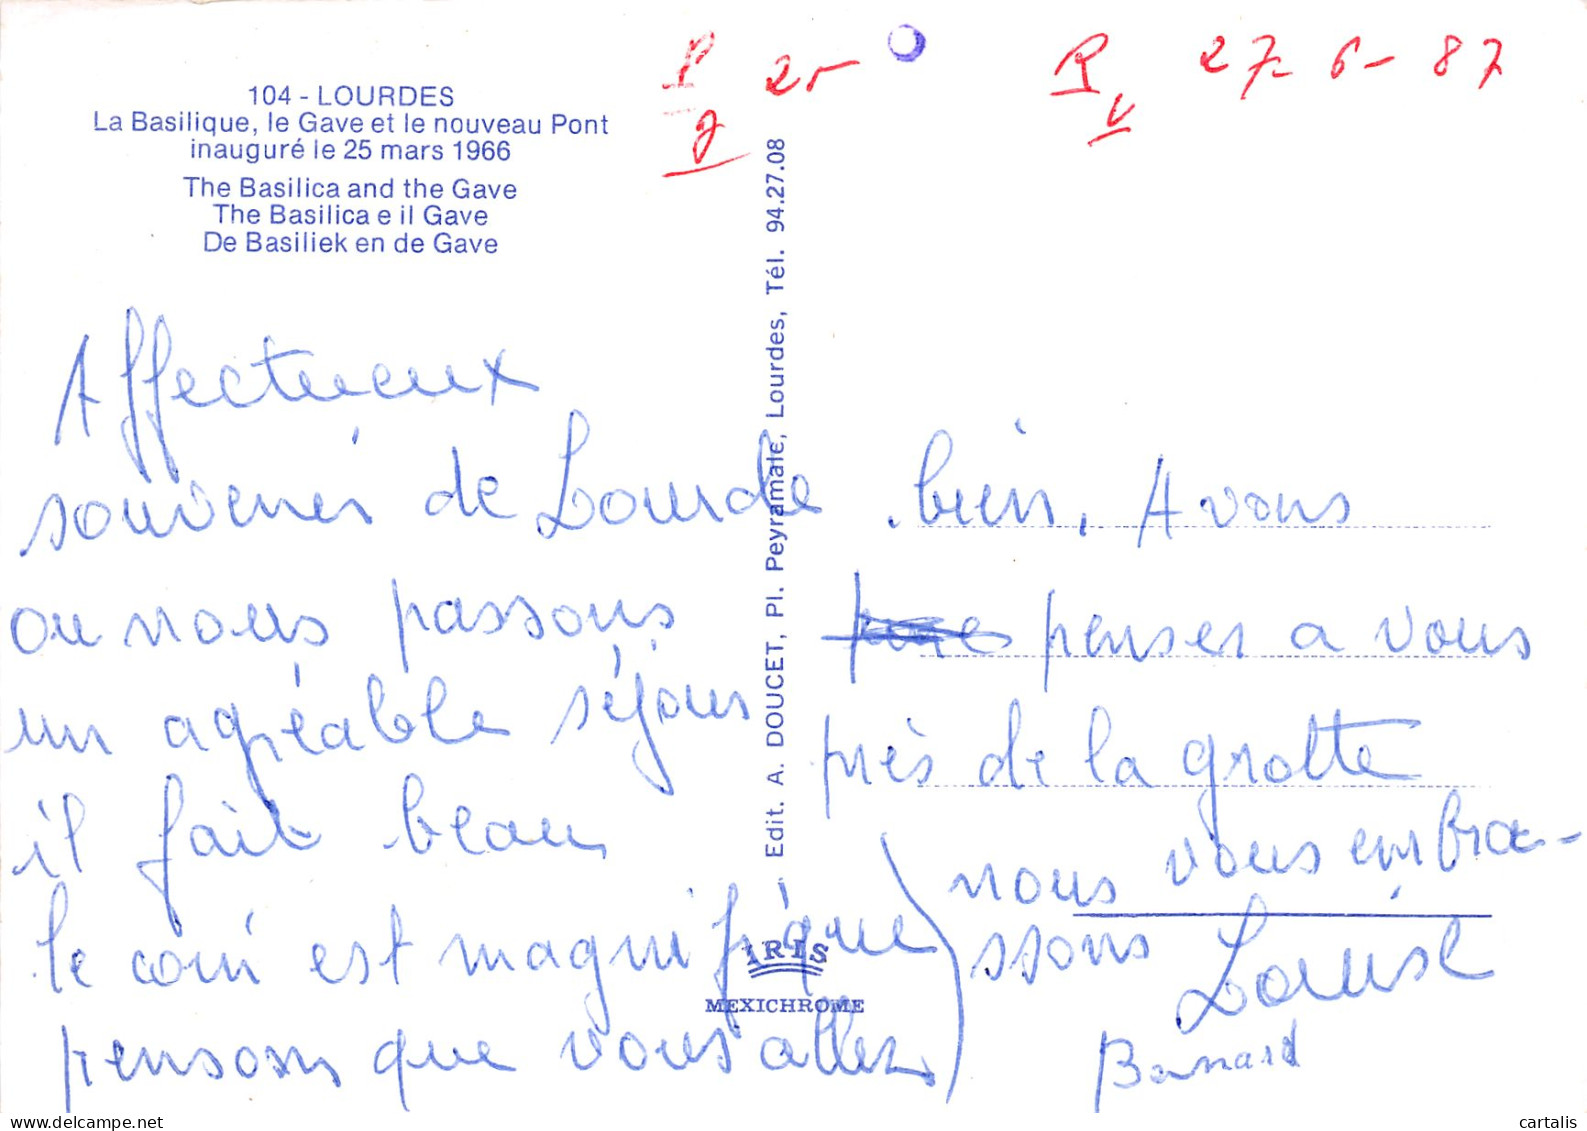 104 - LOURDES
La Basilique, le Gave et le nouveau Pont
inauguré le 25 mars 1966
The Basilica and the Gave
The Basilica e il Gave
De Basiliek en de Gave
R 27-6-87
v
Edit. A. DOUCET, Pl. Peyramale, Lourdes, Tél. 94.27.08
Affectueux
souvenir de Lourde
ou nous passons
un agréable séjour
il fait beau
le coin est magnifique
pensons que vous allez
bien, A vous
penser a vous
près de la grotte
nous vous embra-
ssons
Louise
Bernard
IRIS
MEXICHROME
delcampe.net
cartalis